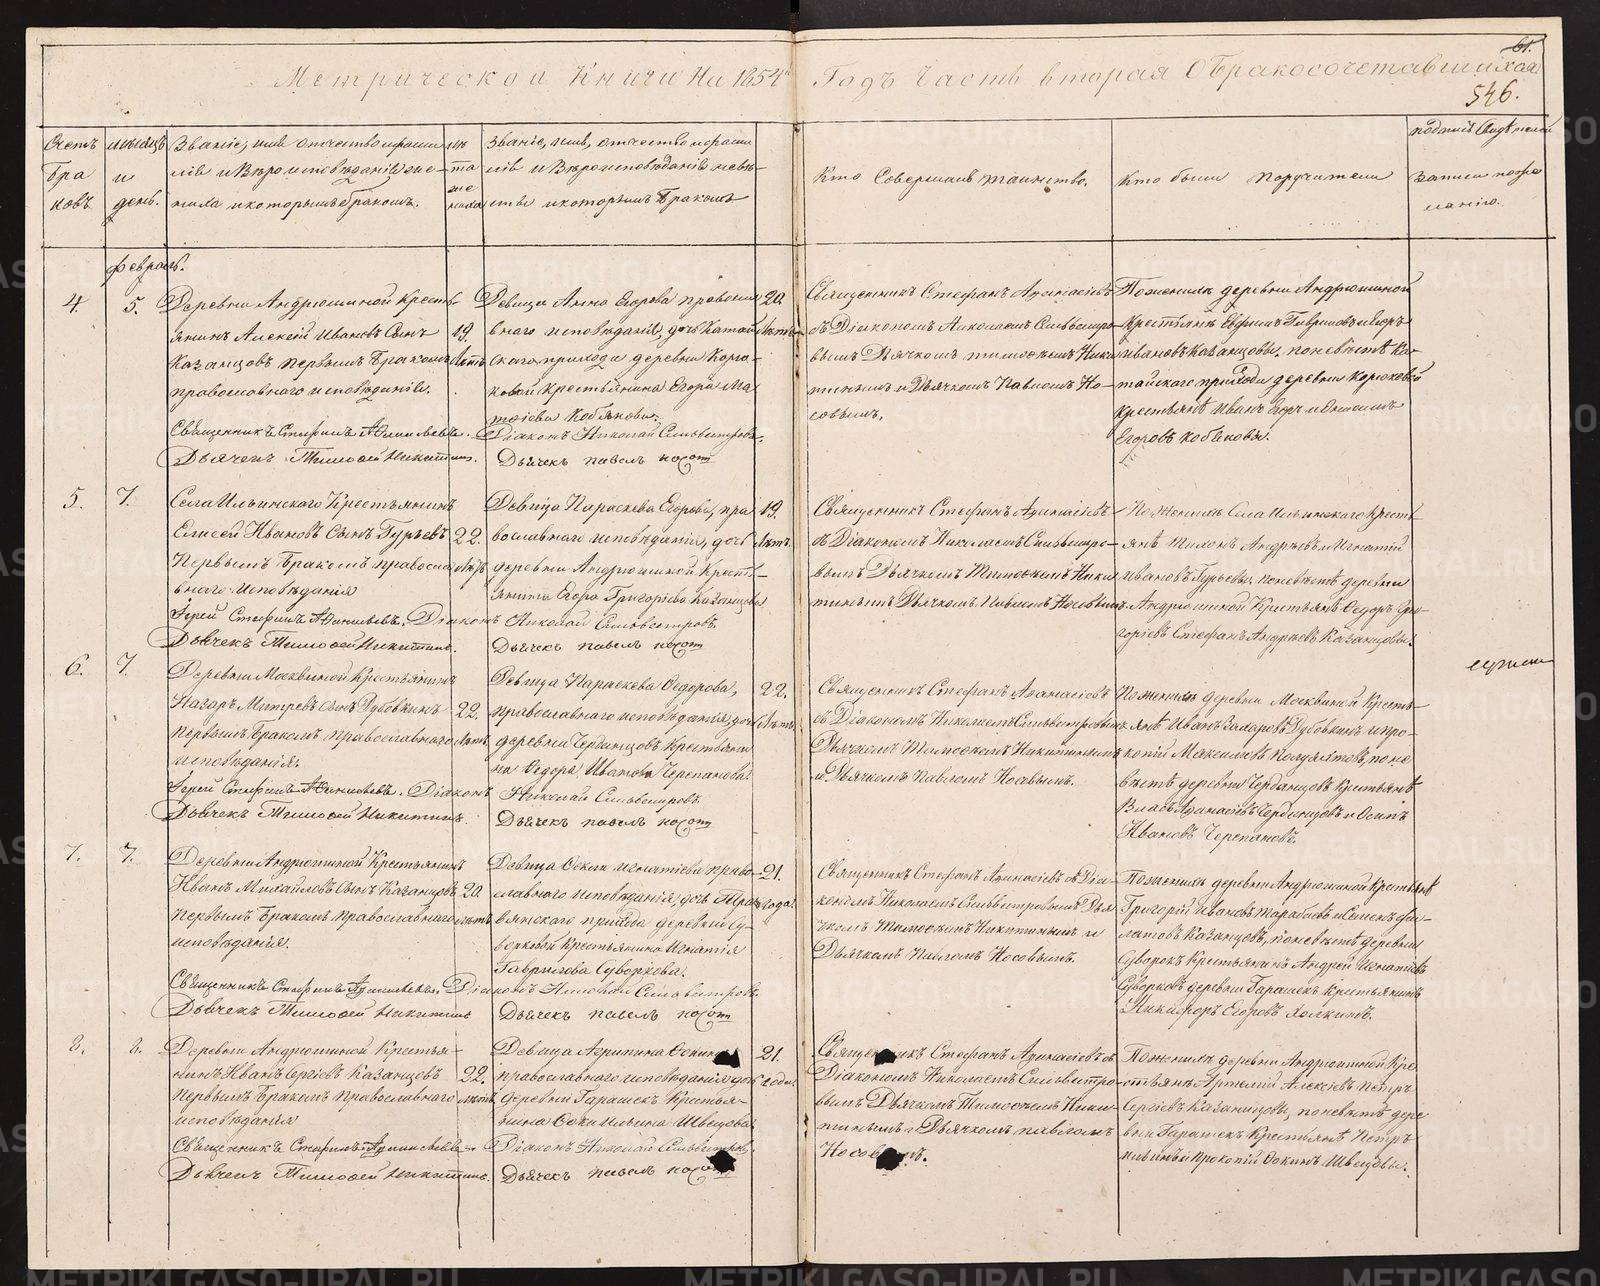 Метрической Книги На 1854й Годъ Часть вторая О бракосочетавшихся
61.
546.
Счетъ браковъ
мѣсяцъ и день.
Званіе, имя отчество и фамилія и Вѣроисповѣданіе жениха и которымъ бракомъ.
лѣта жениха
Званіе, имя, отчество и фамилія и Вѣроисповѣданіе невѣсты и которымъ бракомъ
Кто Совершалъ таинство.
Кто были Поручители
подпись Свидѣтелей записи по желанію.
февраль.
4. 5.
Деревни Андрюшиной Кресть-
янинъ Алексѣй Ивановъ Сынъ
Казанцовъ первымъ бракомъ
православнаго исповѣданія.
19. Лѣтъ
Священникъ Стефанъ Афанасьевъ.
Дьячекъ Тимофей Никитинъ.
Девица Анна Егорова православ
внаго исповѣданія, дочь Катай
скаго прихода деревни Корю-
ковой крестьянина Егора Ма
твѣева Кобякова.
20. Лѣтъ
Діаконъ Николай Сильвестровъ.
Дьячекъ павелъ носовъ
Священникъ Стефанъ Афанасіевъ
съ Діакономъ Николаемъ Сильвестро-
вымъ Дьячкомъ тимофеемъ Ники
тинымъ и Дьячкомъ Павломъ Но-
совымъ.
По женихѣ деревни Андрюшиной
Крестьяне Ефимъ Гавриловъ и Егоръ
Ивановъ Казанцовы. по невѣстѣ Ка-
тайского прихода деревни Корюковой
крестьяне Иванъ Егоръ и
Егоровъ кобяковы.
5. 7.
Села Ильинскаго Крестьянинъ
Елисей Ивановъ Сынъ Гурьевъ
Первымъ бракомъ правосла
внаго исповѣданія
22. Лѣтъ
Іерей Стефанъ Афанасьевъ. Діаконъ Николай Сильвестровъ
Дьячекъ Тимофей Никитинъ.
Девица Параскева Егорова, пра
вославнаго исповѣданія, дочь
деревни Андрюшиной Кресть-
янина Егора Григорьева Казанцова
19. Лѣтъ.
Дьячекъ павелъ носовъ
Священникъ Стефанъ Афанасіевъ
съ Діакономъ Николаемъ Сильвестро-
вымъ Дьячкомъ Тимофеемъ Ники
тинымъ Дьячкомъ Павломъ Носовымъ
По женихѣ Села Ильинскаго кресть-
яне Тихонъ Андреевъ и Игнатій
Ивановъ Гурьевы, по невѣстѣ деревни
Андрюшиной Крестьяне Федоръ Гри-
горіевъ Стефанъ Андреевъ Казанцовы.
6. 7.
Деревни Москвиной Крестьянинъ
Назаръ Митревъ сынъ Дубовкинъ
первымъ бракомъ православнаго
исповѣданія.
22. Лѣтъ
Іерей Стефанъ Афанасьевъ. Діаконъ Николай Сильвестровъ
Дьячекъ Тимофей Никитинъ.
Девица Параскева Федорова,
православнаго исповѣданія, дочь
деревни Чердынцовъ Крестьяни
на Федора Иванова Черепанова.
22. Лѣтъ.
Дьячекъ павелъ носовъ
Священникъ Стефанъ Афанасіевъ
съ Діакономъ Николаемъ Сильвестровымъ
Дьячкомъ Тимофеемъ Никитинымъ
и Дьячкомъ Павломъ Носовымъ.
По женихѣ деревни Москвиной Кресть-
яне Иванъ Захаровъ Дубовкинъ и про-
копій Максимовъ Полуяктовъ, по не
вѣстѣ деревни Чердынцовъ Крестьяне
Власъ Афанасіевъ Чердынцовъ и Осипъ
Ивановъ Черепановъ.
7. 7.
Деревни Андрюшиной Крестьянинъ
Иванъ Михайловъ Сынъ Казанцовъ
первымъ бракомъ православнаго
исповѣданія.
20. лѣтъ
Священникъ Стефанъ Афанасьевъ. Діаконъ Николай Сильвестровъ.
Дьячекъ Тимофей Никитинъ
Девица Фекла Игнатіева право-
славнаго исповѣданія, дочь Тра
вянскаго прихода деревни Су-
ворковой Крестьянина Игнатія
Гаврилова Суворкова.
21. года.
Дьячекъ павелъ носовъ
Священникъ Стефанъ Афанасіевъ съ Діа-
кономъ Николаемъ Сильвестровымъ Дья
чкомъ Тимофеемъ Никитинымъ и
Дьячкомъ Павломъ Носовымъ.
По женихѣ деревни Андрюшиной Крестьяне
Григорій Ивановъ Тарабаевъ и Семенъ фи-
латовъ Казанцовъ, по невѣстѣ деревни
Суворокъ Крестьянинъ Андрей Игнатіевъ
Суворковъ деревни Гарашекъ Крестьянинъ
Никифоръ Егоровъ Холкинъ.
8. 8.
Деревни Андрюшиной Крестья-
нинъ Иванъ Сергіевъ Казанцовъ
первымъ бракомъ православнаго
исповѣданія
22. лѣтъ
Священникъ Стефанъ Афанасьевъ. Діаконъ Николай Сильвестровъ.
Дьячекъ Тимофей Никитинъ.
Девица Агрипина Фокина
православнаго исповѣданія дочь
деревни Гарашекъ Крестья-
нина Фоки Ильина Швецова
21. года.
Дьячекъ павелъ носовъ
Священникъ Стефанъ Афанасіевъ съ
Діакономъ Николаемъ Сильвестро-
вымъ Дьячкомъ Тимофеемъ Ники-
тинымъ и Дьячкомъ павломъ
Носовымъ.
По женихѣ деревни Андрюшиной Кре-
стьяне Артемій Алексіевъ Петръ
Сергіевъ Казанцовы, по невѣстѣ дере
вни Гарашекъ Крестьяне Петръ
ильинъ и Прокопій Фокинъ Швецовы.
METRIKI.GASO-URAL.RU